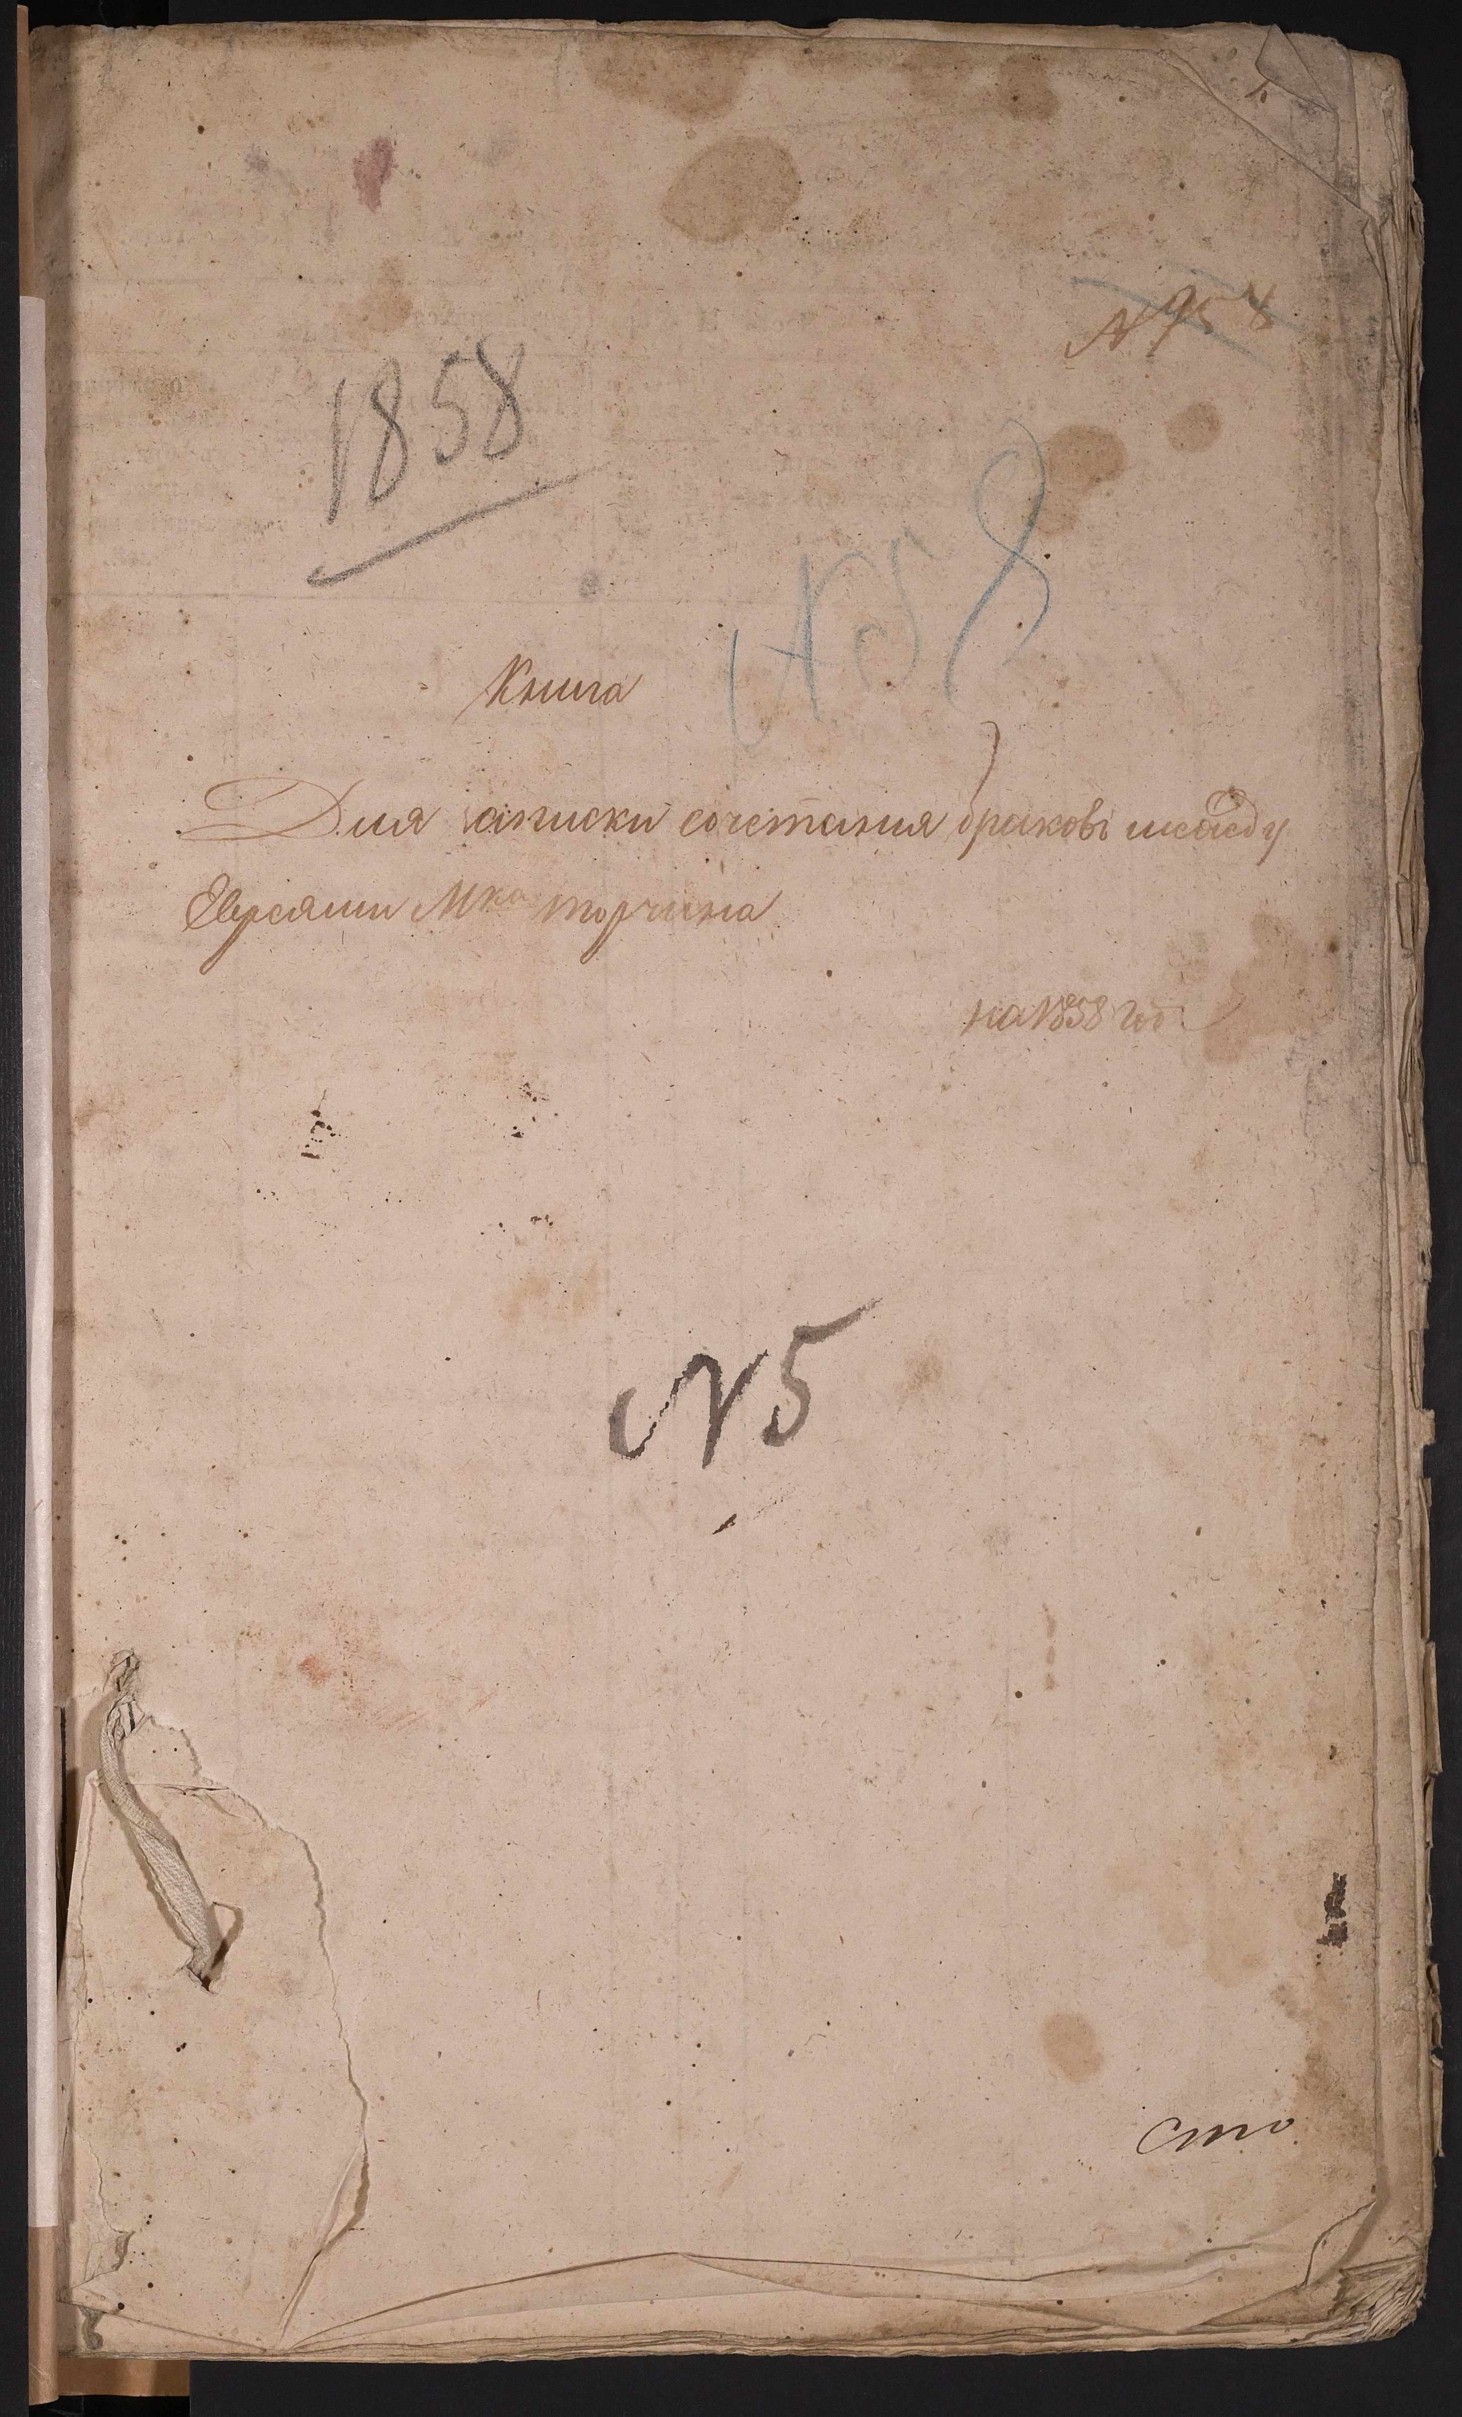 1.
№ 958
1858
№ 58
Книга
Для записки сочетания браковъ между
Евреями М-ка торчина
на 1858 годъ
№ 5
Сто